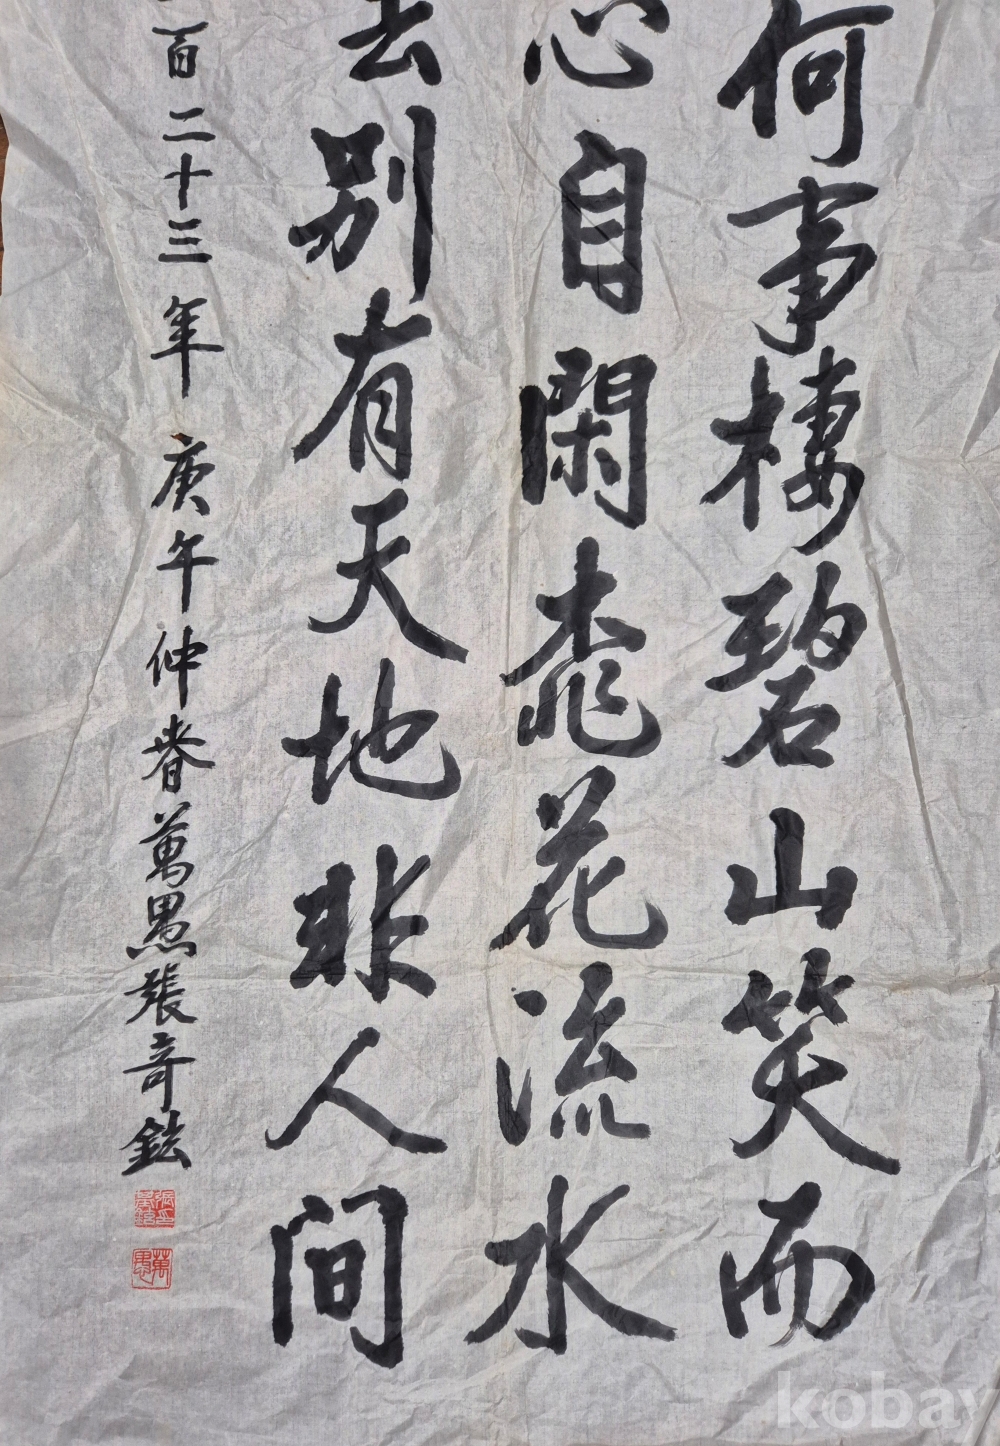 何事棲碧山笑而
心自閑桃花流水
去別有天地非人間
百二十三年 庚午仲春萬愚張奇鉉
kobay